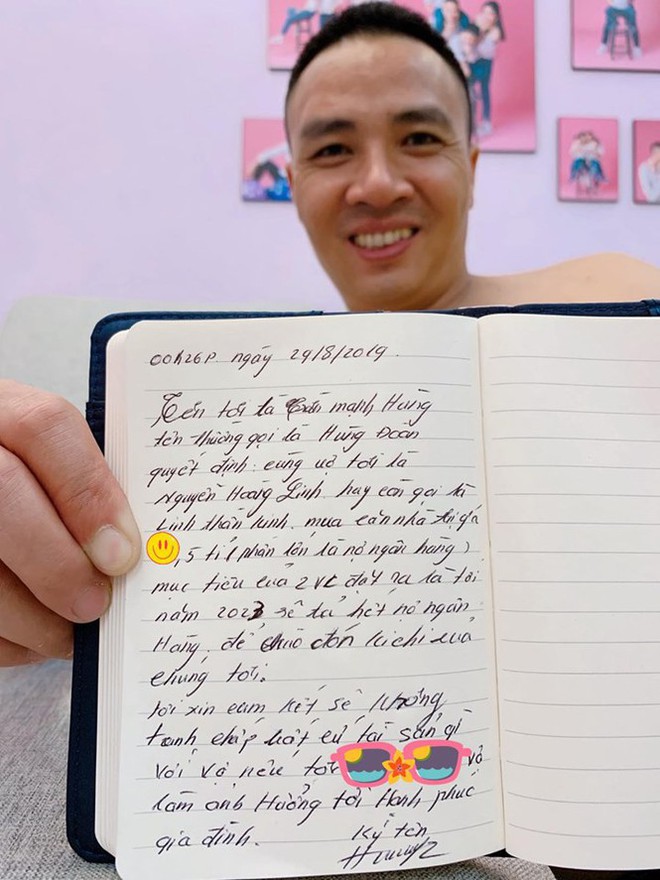 00h26P ngày 29/8/2019.
Tên tôi là Trần mạnh Hùng
tên thường gọi là Hùng Đoàn
quyết định: cùng vợ tôi là
Nguyễn Hoàng Linh hay còn gọi là
Linh thần kinh, mua căn nhà trị giá
,5 tỉ (phần lớn là nợ ngân hàng)
mục tiêu của 2 VC đặt ra là tới
năm 2023 sẽ trả hết nợ ngân
Hàng. để chào đón kichi của
chúng tôi.
tôi xin cam kết sẽ không
tranh chấp bất cứ tài sản gì
với vợ nếu tôi
làm ảnh Hưởng tới Hạnh phúc
gia đình.
Ký tên